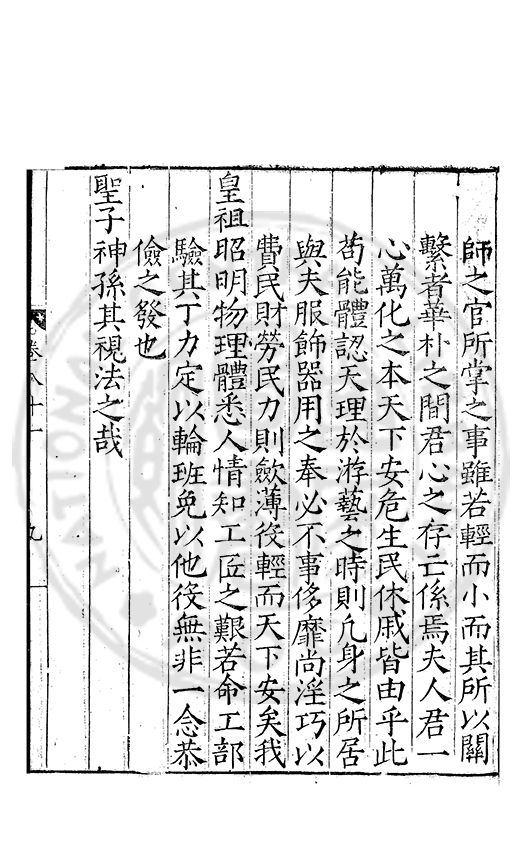 師之官所掌之事雖若輕而小而其所以關
繫者華朴之間君心之存亡係焉夫人君一
心萬化之本天下安危生民休戚皆由乎此
茍能體認天理於游藝之時則凢身之所居
與夫服飾器用之奉必不事侈靡尚淫巧以
費民財勞民力則斂薄役輕而天下安矣我
皇祖昭明物理體悉人情知工匠之艱若命工部
驗其丁力定以輪班免以他役無非一念恭
儉之發也
聖子神孫其視法之哉
卷八十一
九